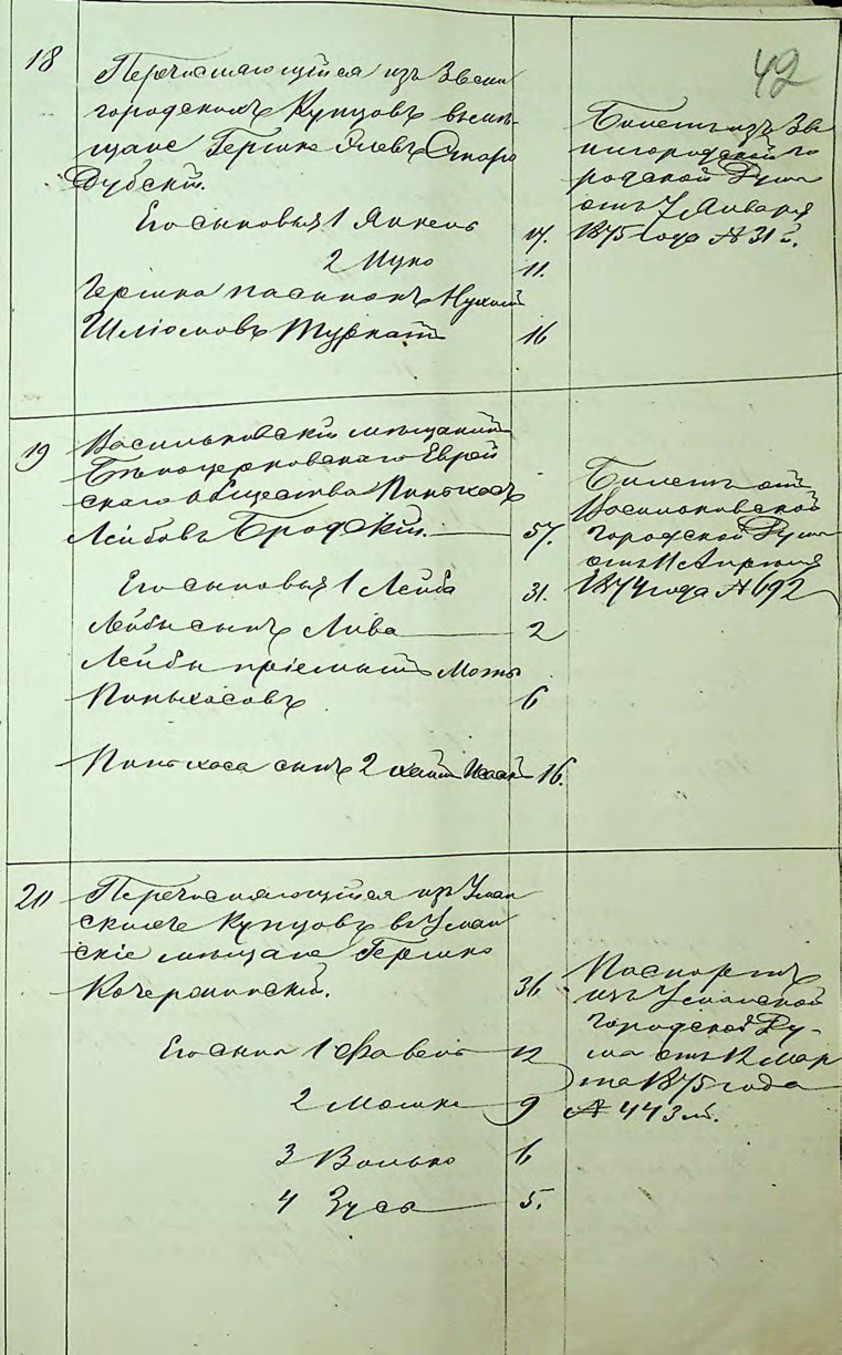 42
18
Перечисляющійся изъ Звени
городскихъ Купцовъ въ мѣ-
щане Гершко Элевъ Старо
Дубскій.
Его сыновья 1 Янкель 14.
2 Ицко 11.
Гершка пасынокъ Нухим
Шліомовъ Турнатъ 16
Билетъ изъ Зве
нигородской го
родской Думы
отъ 7 Января
1875 года № 31 й.
19
Васильковскій мѣщанинъ
Бѣлоцерковскаго Еврей
скаго общества Пинхосъ
Лейбовъ Бродскій. 57.
Его сыновья 1 Лейба 31.
Лейбы сынъ Лива 2
Лейбы пріемышъ Мот
Пинхасовъ 6
Пинхаса сынъ 2 Хаим Исаак 16.
Билетъ отъ
Васильковской
Городской Думы
отъ 11 Апрѣля
1874 года № 692
20
Перечисляющійся изъ Уман
скихъ Купцовъ въ Уман
скіе мѣщане Гершко
Кочержинскій. 36
Его сыны 1 Фавель 12
2 Мошко 9
3 Волько 6
4 Зусь 5.
Паспортъ
изъ Уманской
Городской Ду-
мы отъ 12 Мар
та 1875 года
№ 443 й.